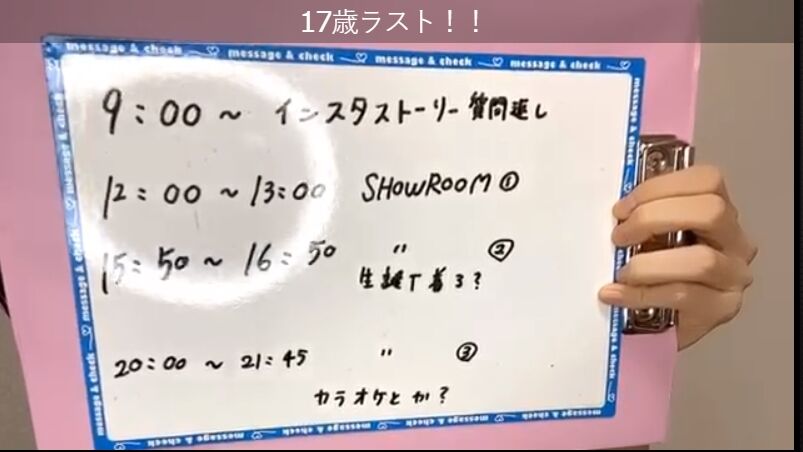 17歳ラスト！！
message & check message & check message & check message & check
9:00～ インスタストーリー質問返し
12:00～13:00 SHOWROOM①
15:50～16:50 〃 ②
生誕T着る?
20:00～21:45 〃 ③
カラオケとか?
message & check message & check message & check message & check